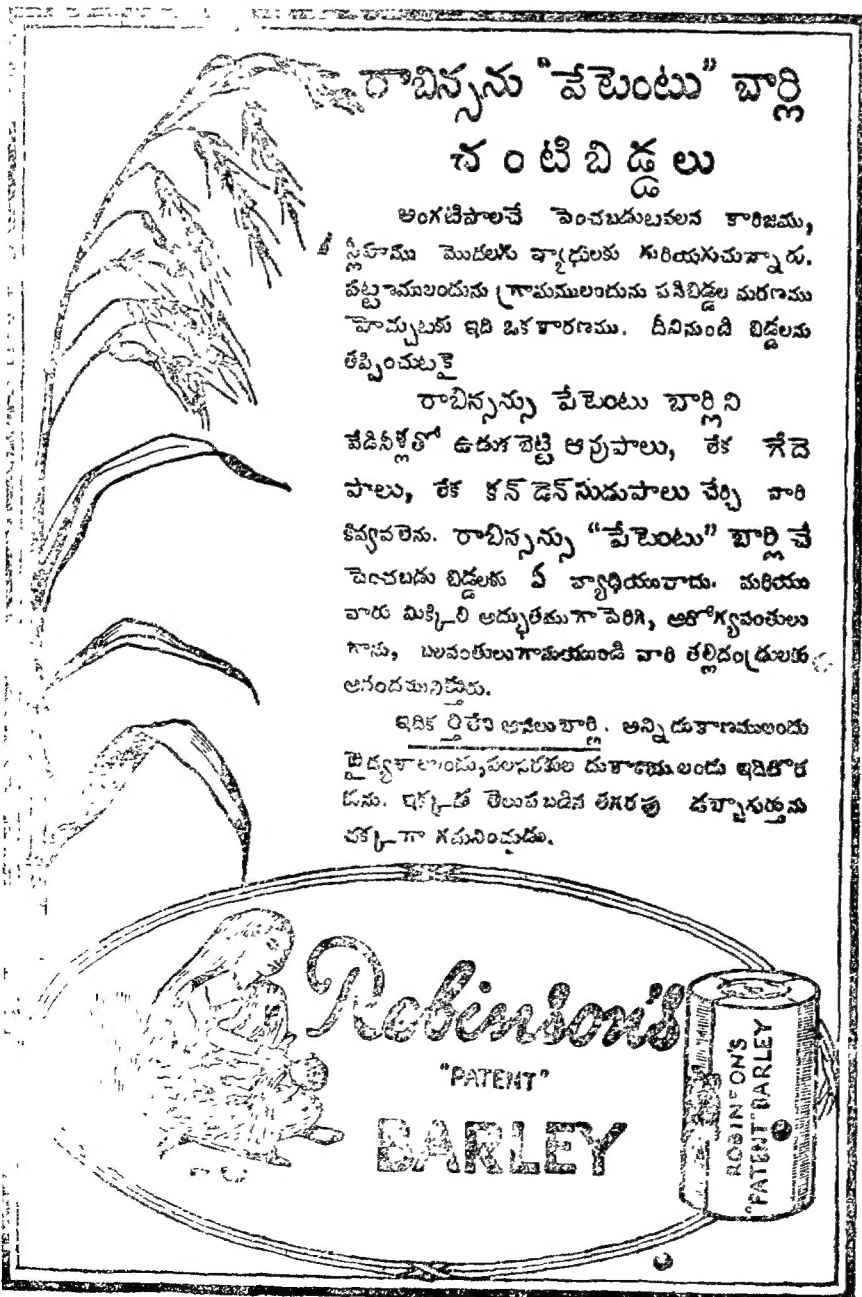 రాబిన్సను "పేటెంటు" బార్లి
చంటిబిడ్డలు
అంగటిపాలచే పెంచబడుటవలన కారిజము,
ప్లీహము మొదలగు వ్యాధులకు గురియగుచున్నారు.
పట్టణములందును గ్రామములందును పసిబిడ్డల మరణము
హెచ్చుటకు ఇది ఒకకారణము. దీనినుండి బిడ్డలను
తప్పించుటకై
రాబిన్సన్సు పేటెంటు బార్లిని
వేడినీళ్లతో ఉడుకబెట్టి ఆవుపాలు, లేక గేదె
పాలు, లేక కన్‌డెన్‌సుడుపాలు చేర్చి వారి
కివ్వవలెను. రాబిన్సన్సు "పేటెంటు" బార్లిచే
పెంచబడు బిడ్డలకు ఏ వ్యాధియురాదు. మరియు
వారు మిక్కిలి అద్భుతముగా పెరిగి, ఆరోగ్యవంతులు
గాను, బలవంతులుగానుయుండి వారి తల్లిదండ్రులకు
ఆనందమునిత్తురు.
ఇదికల్తిలేని అసలుబార్లి. అన్నిదుకాణములందు
వైద్యశాలలందు,పలసరకుల దుకాణములందు ఇదిదొరకు
ను. ఇక్కడ తెలుపబడిన తగరపు డబ్బాగుర్తును
చక్కగా గమనించుడు.
Robinson's
"PATENT"
BARLEY
ROBINSON'S
"PATENT" BARLEY